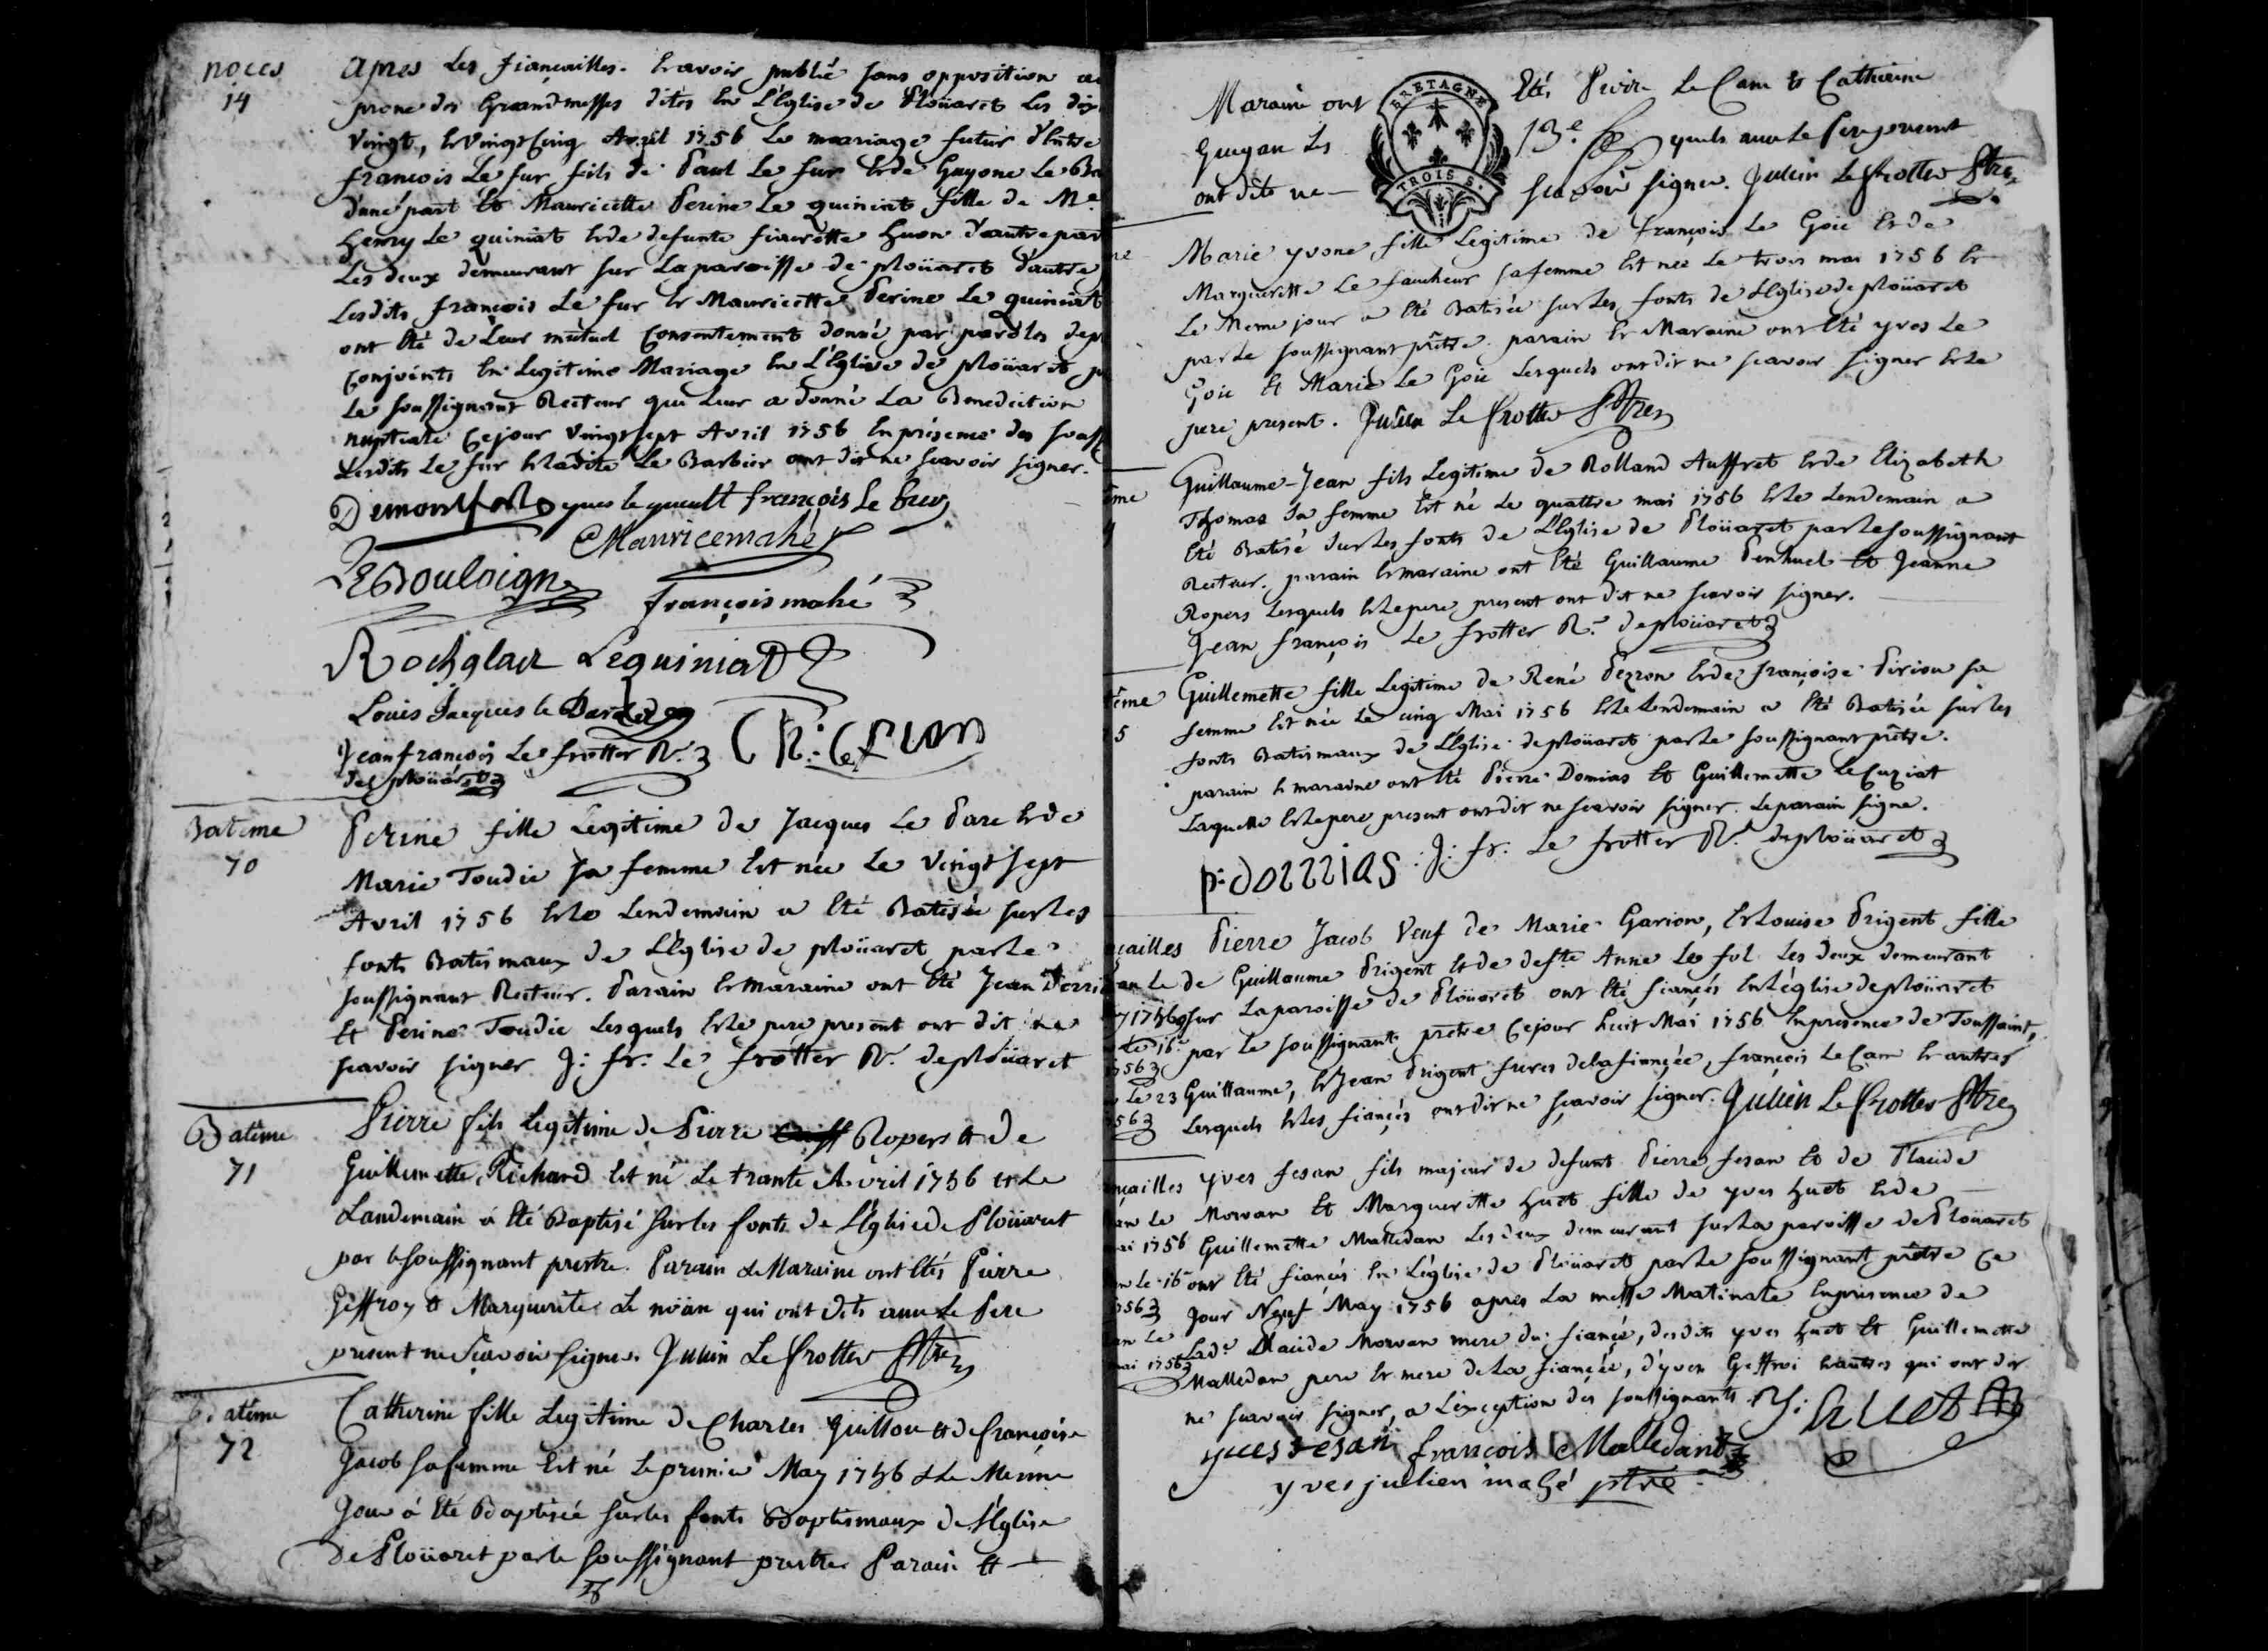 noces
14
apres Les fiancailles. Et avoir publié sans opposition au
prone des Grandmesses dites En L'Eglise de Plouaret Les dix
vingt, Et vingt cinq Avril 1756 Le mariage futur d'Entre
francois Le fur fils de Paul Le fur Et de Guyone Le Ba
d'une part Et Mauricette Perine Le quiniat fille de Me
Henry Le quiniat Et de defunte fiacrette Huon d'autre part
Les deux demeurant sur La paroisse de plouaret d'autre
Lesdits francois Le fur Et Mauricette Perine Le quiniat
ont Eté de Leur mutuel Consentement donné par paroles de p
Conjoints En Legitime Mariage En L'Eglise de plouaret p
Le soussignant Recteur qui Leur a donné La Benediction
nuptiale Ce jour vingt sept Avril 1756 En présence des souss
Lesdits Le fur Et Ladite Le Barbier ont dit ne scavoir signer.
Demontfort yves le gueult françois Le fur
Mauricemahé
LeBouloign
françoismahé
Rochglaz Lequiniat
Louis Jacques le
Jean françois Le frotter R.r
de plouaret
Batême
70
Perine fille Legitime de Jacques Le Parc Et de
Marie Toudic Sa femme Est née Le vingt sept
Avril 1756 Et Le Lendemain a Eté Batisée sur Les
fonts Batismaux de L'Eglise de plouaret par Le
soussignant Recteur. Parain Et maraine ont Eté Jean Derri
Et Perine Toudic Lesquels Et Le pere present ont dit ne
scavoir signer J: fr: Le frotter R.r de plouaret
Batême
71
Pierre fils Legitime de Pierre Ropers et de
Guillemette Richard Est né Le trante Avril 1756 et Le
Landemain a Eté Baptisé sur les fonts de L'Eglise de Plouaret
par le soussignant prestre. Parain et Maraine ont Etés Pierre
Geffroy et Marguerite Le moan qui ont dits avec Le Pere
present ne Scavoir signer. Julien Le frotter Ptre
Batême
72
Catherine fille Legitime de Charles Guillou et de françoise
Jacob sa femme Est né Le premier May 1756 et Le Meme
Jour a Eté Baptisée sur les fonts Baptismaux de L'Eglise
De Plouaret par le soussignant prestre Parain Et
Maraine ont Etés Pierre Le Cam Et Catherine
BRETAGNE
TROIS S.
Guegan Les 13.e quels avec Le Pere present
ont dits ne scavoir signer. Julien Le frotter Ptre
Marie yvone fille Legitime de françois Le Goic Et de
Marguerite Le faucheur sa femme Est née Le trois mai 1756 Et
Le Meme jour a Eté Batisée sur Les fonts de L'Eglise de plouaret
par Le soussignant prêtre. parain Et Maraine ont Eté yves Le
Goic Et Marie Le Goic Lesquels ont dit ne scavoir signer Et Le
pere present. Julien Le frotter Ptre
Guillaume-Jean fils Legitime de Rolland Auffret Et de Elizabeth
Thomas Sa femme Est né Le quattre mai 1756 Et Le Lendemain a
Eté Batisé sur Les fonts de L'Eglise de Plouaret par Le soussignant
Recteur. parain Et maraine ont Eté Guillaume Penhuel Et Jeanne
Ropers Lesquels Et Le pere present ont dit ne scavoir signer.
Jean françois Le frotter R.r de plouaret
tême
5
Guillemette fille Legitime de René Pezron Et de françoise Piriou sa
femme Est née Le cinq Mai 1756 Et Le Lendemain a Eté Batisée sur Les
fonts Batismaux de L'Eglise de plouaret par Le soussignant prêtre.
parain Et maraine ont Eté Pierre Domias Et Guillemette Le Cuziat
Laquelle Et Le pere present ont dit ne scavoir signer. Le parain signe.
p: domias J: fr: Le frotter R.r de plouaret
cailles
Pierre Jacob Veuf de Marie Garion, Et Louise Prigent fille
de Guillaume Prigent Et de defte Anne Le fol Les deux demeurant
sur La paroisse de Plouaret ont Eté fiancés En L'église de plouaret
par Le soussignant prêtre Ce jour huit Mai 1756 En presence de Toussaint,
Guillaume, Et Jean Prigent freres de La fiancée, françois Le Cam Et autres
Lesquels Et Les fiancés ont dit ne scavoir signer. Julien Le frotter Ptre
ncailles
yves fesan fils majeur de defunt Pierre fesan Et de Claude
Morvan Et Marguerite Huet fille de yves Huet Et de
mai 1756 Guillemette Malledan Les deux demeurant sur La paroisse de Plouaret
ont Eté fiancés En L'église de Plouaret par Le soussignant prêtre Ce
Jour Neuf May 1756 apres La messe Matinale En presence de
Lade Claude Morvan mere du fiancé, desdits yves Huet Et Guillemette
Malledan pere Et mere de La fiancée, d'yven Geffroi Et autres qui ont dit
ne scavoir signer, a L'exception des soussignants. Y: huet
yves fesan francois Malledant
yves julien mahé ptre